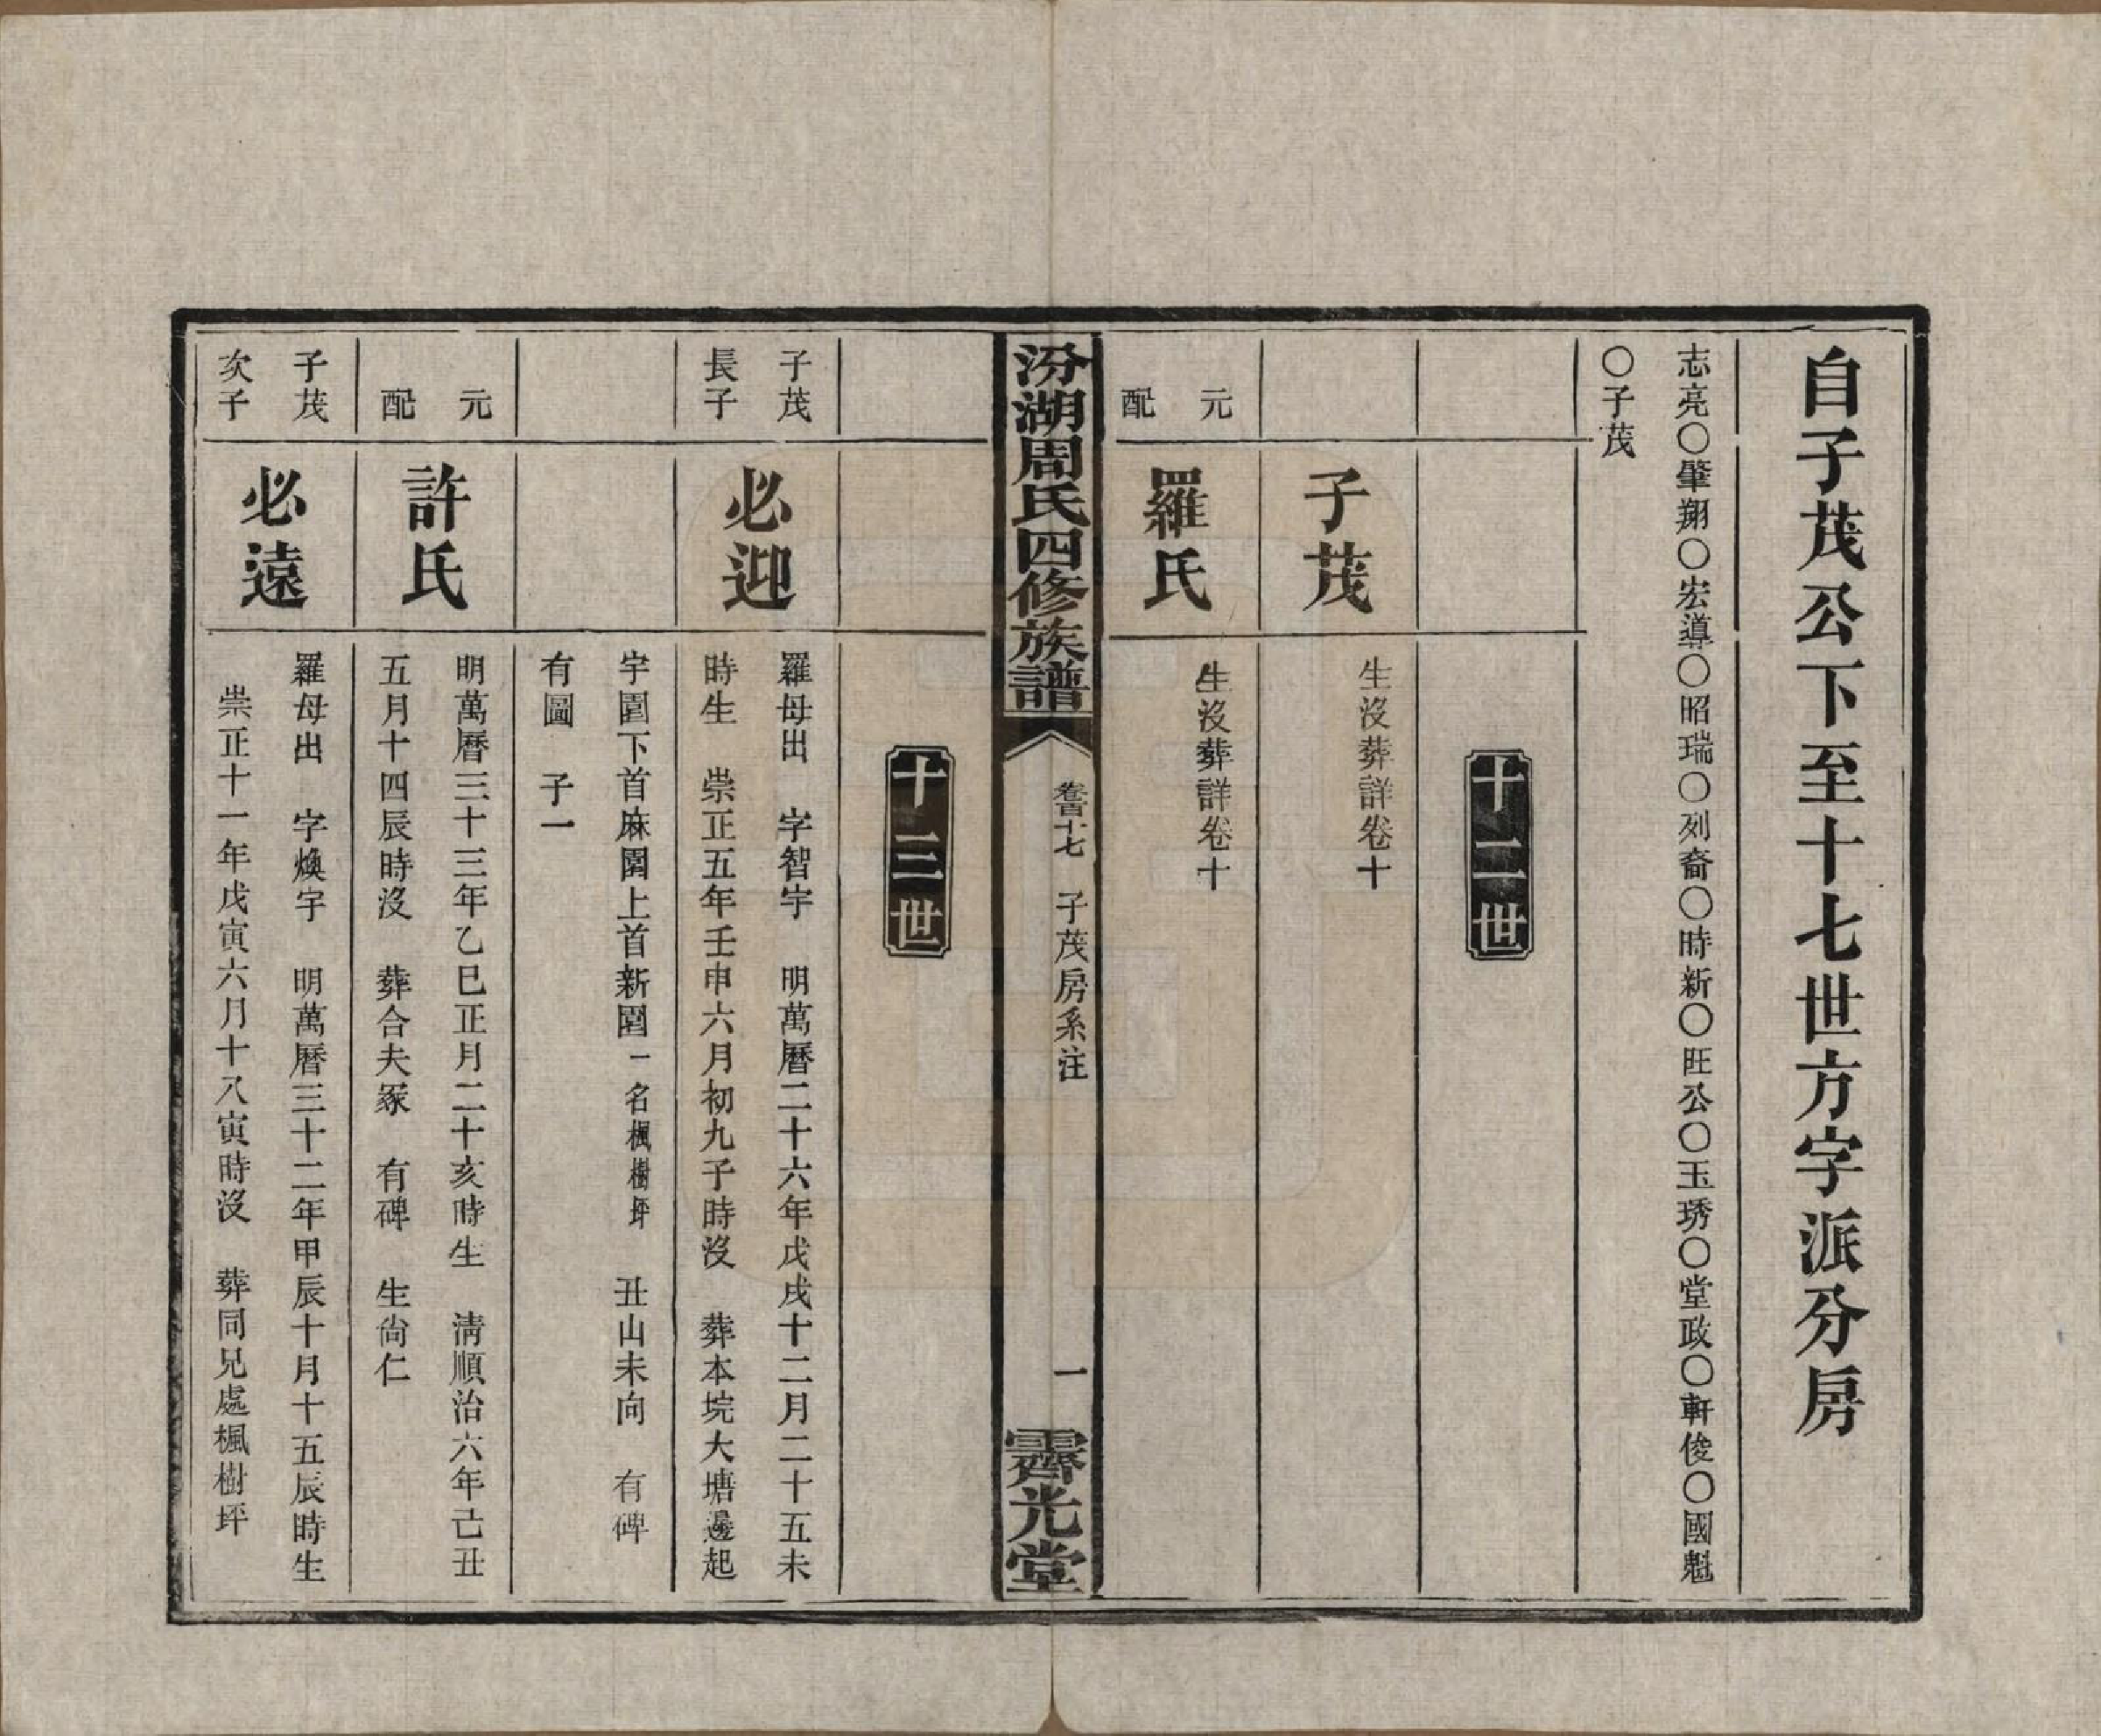 自子茂公下至十七世方字派分房
志亮〇肇翔〇宏導〇昭瑞〇列裔〇時新〇旺公〇玉琇〇堂政〇軒俊〇國魁
〇子茂
十二世
子茂
生沒葬詳卷十
元配
羅氏
生沒葬詳卷十
汾湖周氏四修族譜
卷百十七
子茂房系注
一
霽光堂
十三世
子茂
長子
必迎
羅母出 字智宇 明萬曆二十六年戊戌十二月二十五未
時生 崇正五年壬申六月初九子時沒 葬本垸大塘邊起
宇園下首麻園上首新園一名楓樹坪 丑山未向 有碑
有圖 子一
元配
許氏
明萬曆三十三年乙巳正月二十亥時生 清順治六年己丑
五月十四辰時沒 葬合夫冢 有碑 生尙仁
子茂
次子
必遠
羅母出 字煥宇 明萬曆三十二年甲辰十月十五辰時生
崇正十一年戊寅六月十八寅時沒 葬同兄處楓樹坪